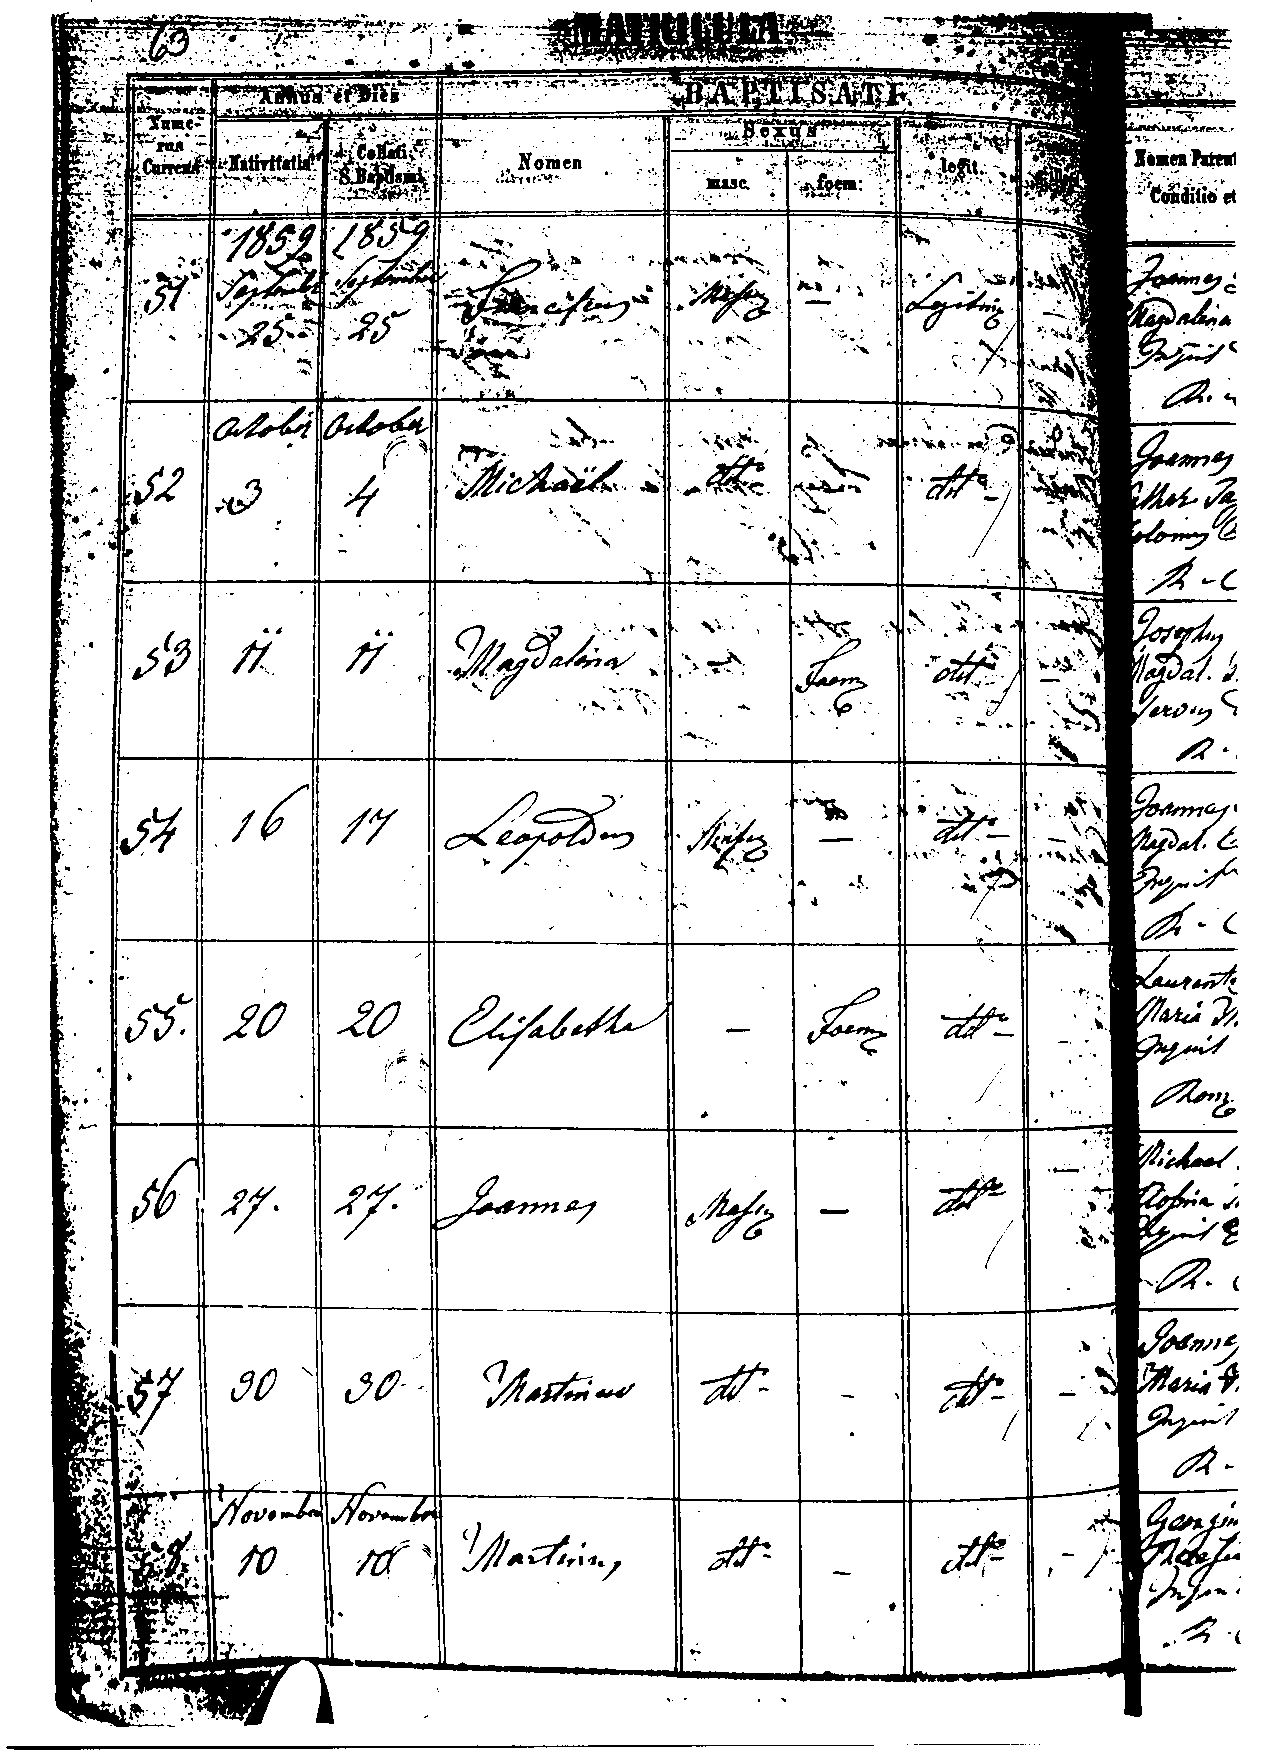 63
MATRICULA
Annus et Dies
BAPTISATI
Nume-
rus
Current
Nativitatis
Collati
S. Baptismi
Nomen
Sexus
masc.
foem:
legit.
Nomen Parent
Conditio et
51
1859
September
25
1859
September
25
Franciscus
Masc
—
Legitim
—
Joannes
Magdalena
Inquil
R.
52
October
3
October
4
Michaël
dtto
dtto
Joannes
R - C
53
11
11
Magdalena
—
Foem
dtto
—
Josephus
Magdal.
R.
54
16
17
Leopoldus
Masc
—
dtto
—
Joannes
Magdal.
Inquil
R - C
55.
20
20
Elisabetha
—
Foem
dtto
-
Laurent
Maria
Inquil
Rom
56
27.
27.
Joannes
Masc
—
dtto
Michael
Rosina
Inquil
R.
57
30
30
Martinus
dtto
-
dtto
-
Joannes
Maria
Inquil
R.
58
November
10
November
10
Martinus
dtto
-
dtto
-
Georgius
R.